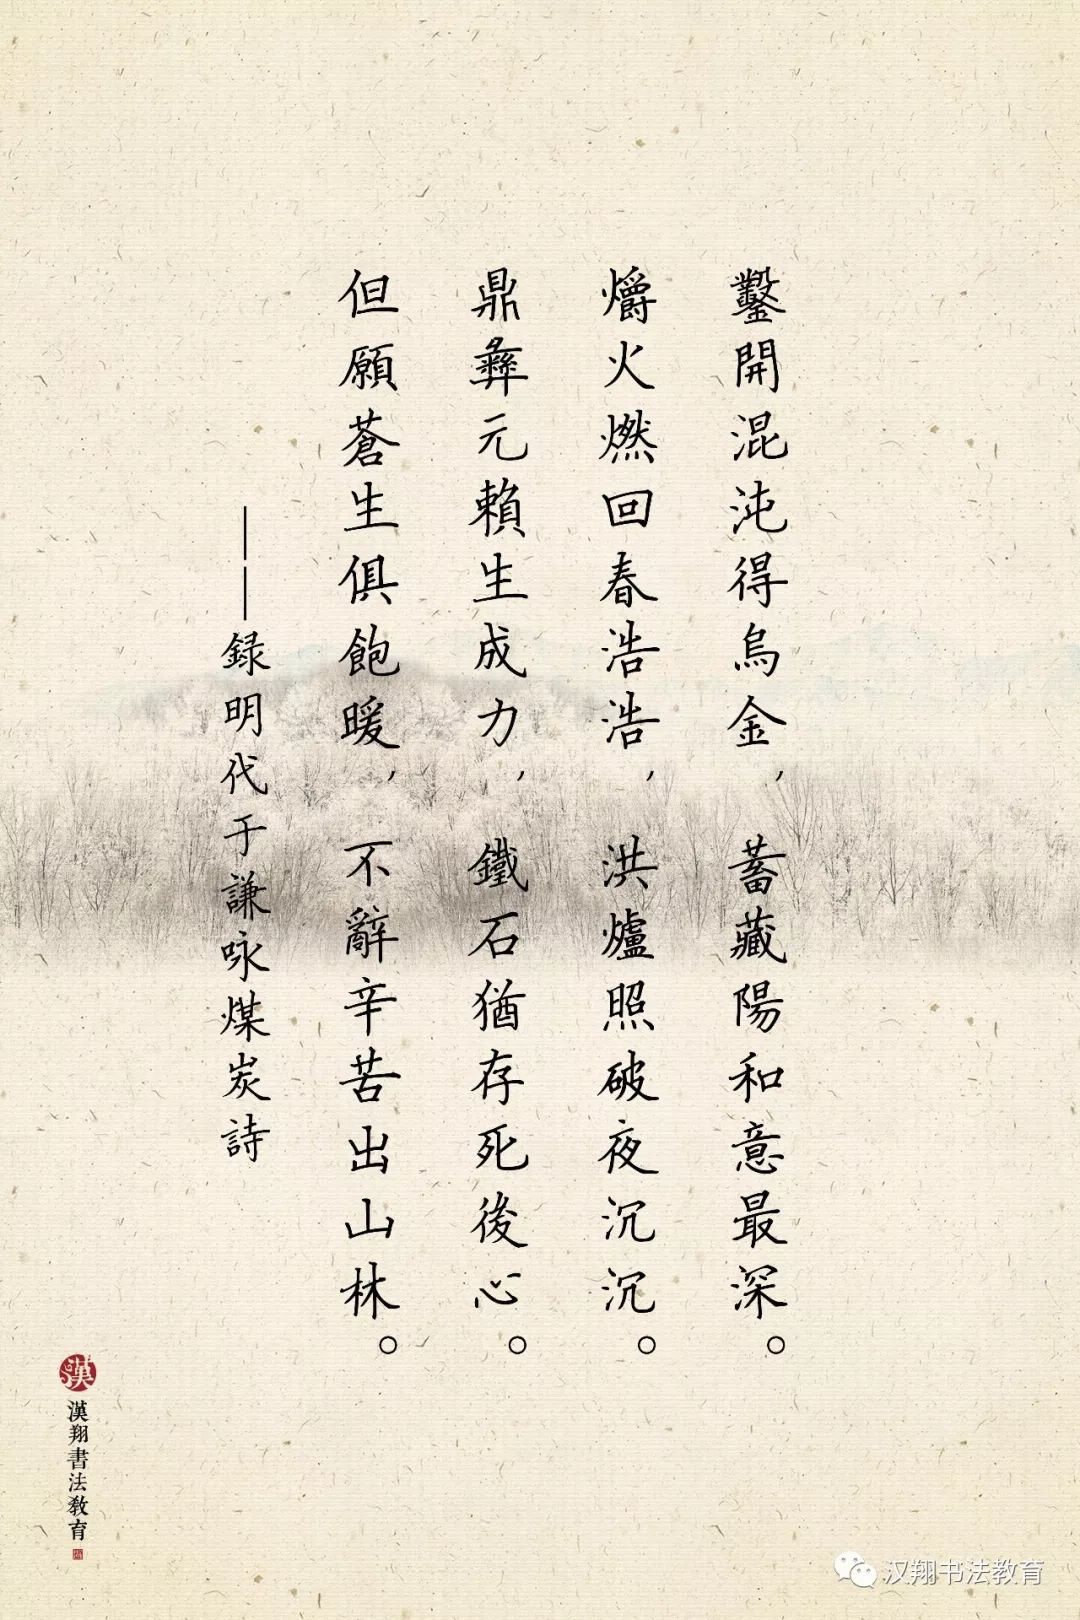 鑿開混沌得烏金，蓄藏陽和意最深。
爝火燃回春浩浩，洪爐照破夜沉沉。
鼎彝元賴生成力，鐵石猶存死後心。
但願蒼生俱飽暖，不辭辛苦出山林。
——録明代于謙咏煤炭詩
漢
漢翔書法教育
汉翔书法教育